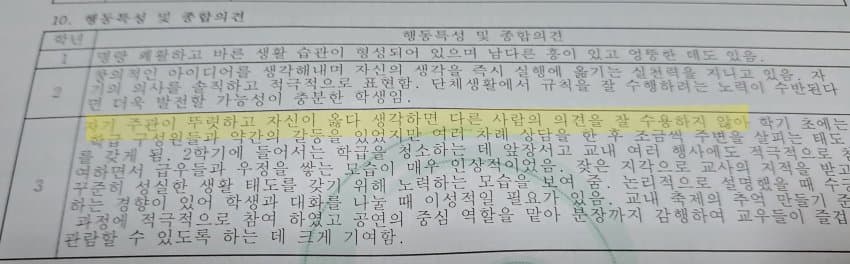 10. 행동특성 및 종합의견
학년 행동특성 및 종합의견
1 명랑 쾌활하고 바른 생활 습관이 형성되어 있으며 남다른 흥이 있고 엉뚱한 태도 있음.
2 창의적인 아이디어를 생각해내며 자신의 생각을 즉시 실행에 옮기는 실천력을 지니고 있음. 자
기의 의사를 솔직하고 적극적으로 표현함. 단체생활에서 규칙을 잘 수행하려는 노력이 수반된다
면 더욱 발전할 가능성이 충분한 학생임.
3 자기 주관이 뚜렷하고 자신이 옳다 생각하면 다른 사람의 의견을 잘 수용하지 않아 학기 초에는
학급 구성원들과 약간의 갈등을 있었지만 여러 차례 상담을 한 후 조금씩 주변을 살피는 태도
를 갖게 됨. 2학기에 들어서는 학급을 청소하는 데 앞장서고 교내 여러 행사에도 적극적으로 참
여하면서 급우들과 우정을 쌓는 모습이 매우 인상적이었음. 잦은 지각으로 교사의 지적을 받고
꾸준히 성실한 생활 태도를 갖기 위해 노력하는 모습을 보여 줌. 논리적으로 설명했을 때 수긍
하는 경향이 있어 학생과 대화를 나눌 때 이성적일 필요가 있음. 교내 축제의 추억 만들기 준
과정에 적극적으로 참여 하였고 공연의 중심 역할을 맡아 분장까지 감행하여 교우들이 즐겁
관람할 수 있도록 하는 데 크게 기여함.